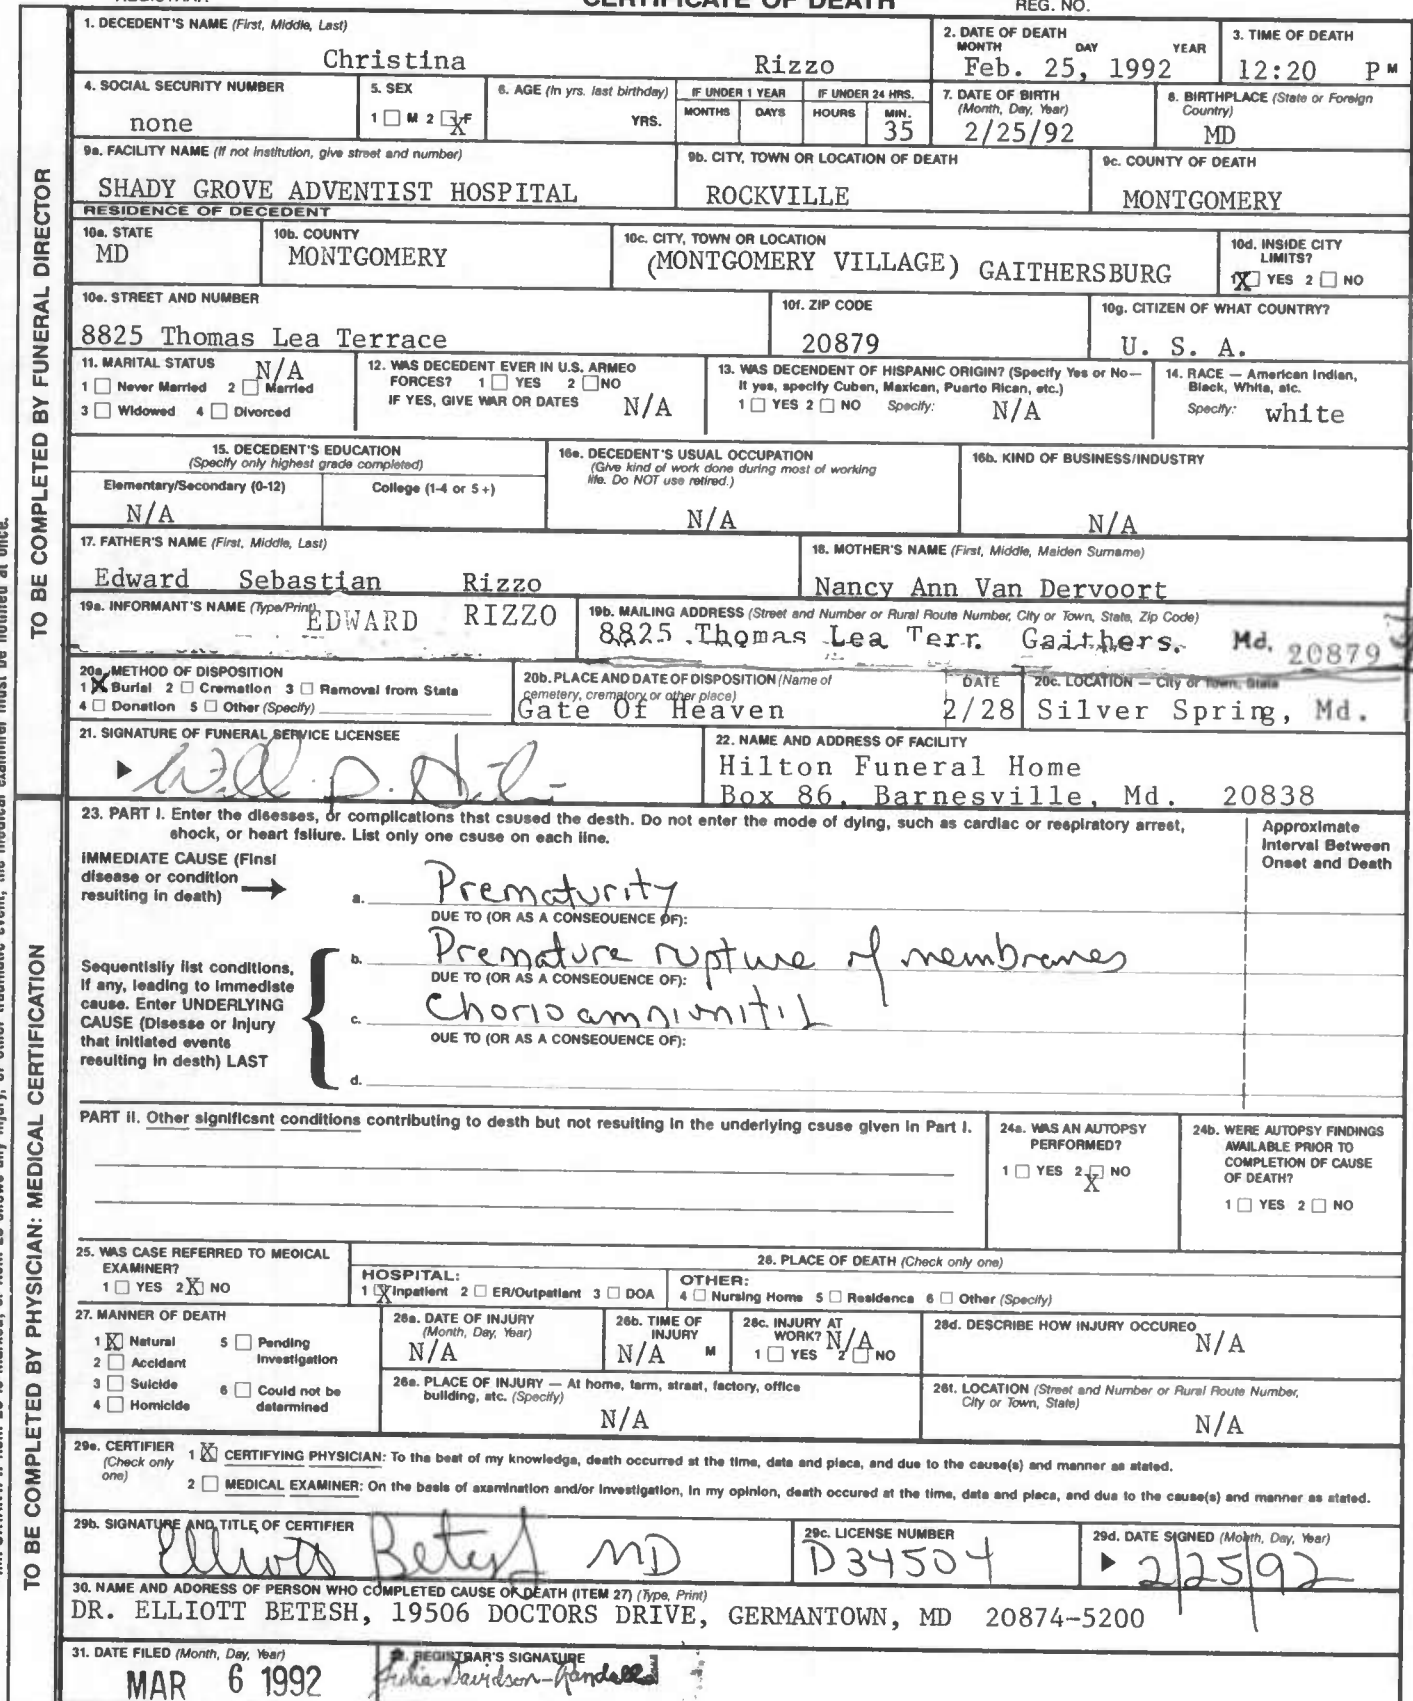 REGISTRAR
CERTIFICATE OF DEATH
REG. NO.
TO BE COMPLETED BY FUNERAL DIRECTOR
1. DECEDENT'S NAME (First, Middle, Last)
Christina Rizzo
2. DATE OF DEATH
MONTH DAY YEAR
Feb. 25, 1992
3. TIME OF DEATH
12:20 P M
4. SOCIAL SECURITY NUMBER
none
5. SEX
1 ☐ M 2 ☒ F
6. AGE (In yrs. last birthday)
YRS.
IF UNDER 1 YEAR
MONTHS DAYS
IF UNDER 24 HRS.
HOURS MIN.
35
7. DATE OF BIRTH
(Month, Day, Year)
2/25/92
8. BIRTHPLACE (State or Foreign
Country)
MD
9a. FACILITY NAME (If not institution, give street and number)
SHADY GROVE ADVENTIST HOSPITAL
9b. CITY, TOWN OR LOCATION OF DEATH
ROCKVILLE
9c. COUNTY OF DEATH
MONTGOMERY
RESIDENCE OF DECEDENT
10a. STATE
MD
10b. COUNTY
MONTGOMERY
10c. CITY, TOWN OR LOCATION
(MONTGOMERY VILLAGE) GAITHERSBURG
10d. INSIDE CITY
LIMITS?
1 ☒ YES 2 ☐ NO
10e. STREET AND NUMBER
8825 Thomas Lea Terrace
10f. ZIP CODE
20879
10g. CITIZEN OF WHAT COUNTRY?
U. S. A.
11. MARITAL STATUS
N/A
1 ☐ Never Married 2 ☐ Married
3 ☐ Widowed 4 ☐ Divorced
12. WAS DECEDENT EVER IN U.S. ARMEO
FORCES? 1 ☐ YES 2 ☐ NO
IF YES, GIVE WAR OR DATES
N/A
13. WAS DECENDENT OF HISPANIC ORIGIN? (Specify Yes or No—
If yes, specify Cuben, Maxican, Puarto Rican, etc.)
1 ☐ YES 2 ☐ NO Specify:
N/A
14. RACE — American Indian,
Black, Whita, atc.
Specify: white
15. DECEDENT'S EDUCATION
(Specify only highest grade completed)
Elementary/Secondary (0-12) College (1-4 or 5+)
N/A
16a. DECEDENT'S USUAL OCCUPATION
(Give kind of work done during most of working
life. Do NOT use retired.)
N/A
16b. KIND OF BUSINESS/INDUSTRY
N/A
17. FATHER'S NAME (First, Middle, Last)
Edward Sebastian Rizzo
18. MOTHER'S NAME (First, Middle, Maiden Surname)
Nancy Ann Van Dervoort
19a. INFORMANT'S NAME (Type/Print)
EDWARD RIZZO
19b. MAILING ADDRESS (Street and Number or Rural Route Number, City or Town, State, Zip Code)
8825 Thomas Lea Terr. Gaithers. Md. 20879
20a. METHOD OF DISPOSITION
1 ☒ Burial 2 ☐ Cremation 3 ☐ Removal from Stata
4 ☐ Donation 5 ☐ Other (Specify)
20b. PLACE AND DATE OF DISPOSITION (Name of
cemetery, crematory or other place)
Gate Of Heaven
DATE
2/28
20c. LOCATION — City or Town, State
Silver Spring, Md.
21. SIGNATURE OF FUNERAL SERVICE LICENSEE
22. NAME AND ADDRESS OF FACILITY
Hilton Funeral Home
Box 86, Barnesville, Md. 20838
TO BE COMPLETED BY PHYSICIAN: MEDICAL CERTIFICATION
23. PART I. Enter the diseases, or complications that csused the death. Do not enter the mode of dying, such as cardiac or respiratory arrest,
shock, or heart fsilure. List only one csuse on each line.
Approximate
Interval Between
Onset and Death
IMMEDIATE CAUSE (Finsl
disease or condition
resulting in death)
a. Prematurity
DUE TO (OR AS A CONSEOUENCE OF):
Sequentislly list conditions,
if any, leading to immediste
cause. Enter UNDERLYING
CAUSE (Disesse or Injury
that initiated events
resulting in desth) LAST
b. Premature rupture of membranes
DUE TO (OR AS A CONSEQUENCE OF):
c. Chorioamnionitis
OUE TO (OR AS A CONSEOUENCE OF):
d.
PART II. Other significsnt conditions contributing to death but not resulting in the underlying csuse given in Part I.
24a. WAS AN AUTOPSY
PERFORMED?
1 ☐ YES 2 ☒ NO
24b. WERE AUTOPSY FINDINGS
AVAILABLE PRIOR TO
COMPLETION OF CAUSE
OF DEATH?
1 ☐ YES 2 ☐ NO
25. WAS CASE REFERRED TO MEOICAL
EXAMINER?
1 ☐ YES 2 ☒ NO
26. PLACE OF DEATH (Check only one)
HOSPITAL:
1 ☒ Inpatient 2 ☐ ER/Outpatiant 3 ☐ DOA
OTHER:
4 ☐ Nursing Home 5 ☐ Rasidenca 6 ☐ Other (Specify)
27. MANNER OF DEATH
1 ☒ Natural 5 ☐ Pending
Investigation
2 ☐ Accidant
3 ☐ Suicide 6 ☐ Could not be
datarmined
4 ☐ Homicide
28a. DATE OF INJURY
(Month, Day, Year)
N/A
28b. TIME OF
INJURY
N/A M
28c. INJURY AT
WORK? N/A
1 ☐ YES 2 ☐ NO
28d. DESCRIBE HOW INJURY OCCUREO
N/A
28e. PLACE OF INJURY — At homa, farm, straat, factory, offica
building, atc. (Specify)
N/A
28f. LOCATION (Street and Number or Rural Route Number,
City or Town, State)
N/A
29a. CERTIFIER
(Check only
one)
1 ☒ CERTIFYING PHYSICIAN: To the beat of my knowledga, death occurred st the tima, data and placa, and due to the causa(s) and mannar as atated.
2 ☐ MEDICAL EXAMINER: On the basis of axamination and/or invastigation, in my opinion, death occured at the time, data and placa, and dua to the cause(s) and mannar as stated.
29b. SIGNATURE AND TITLE OF CERTIFIER
Elliott Betesh MD
29c. LICENSE NUMBER
D34504
29d. DATE SIGNED (Month, Day, Year)
2/25/92
30. NAME AND ADORESS OF PERSON WHO COMPLETED CAUSE OF DEATH (ITEM 27) (Type, Print)
DR. ELLIOTT BETESH, 19506 DOCTORS DRIVE, GERMANTOWN, MD 20874-5200
31. DATE FILED (Month, Day, Year)
MAR 6 1992
REGISTRAR'S SIGNATURE
Julia Davidson-Randall